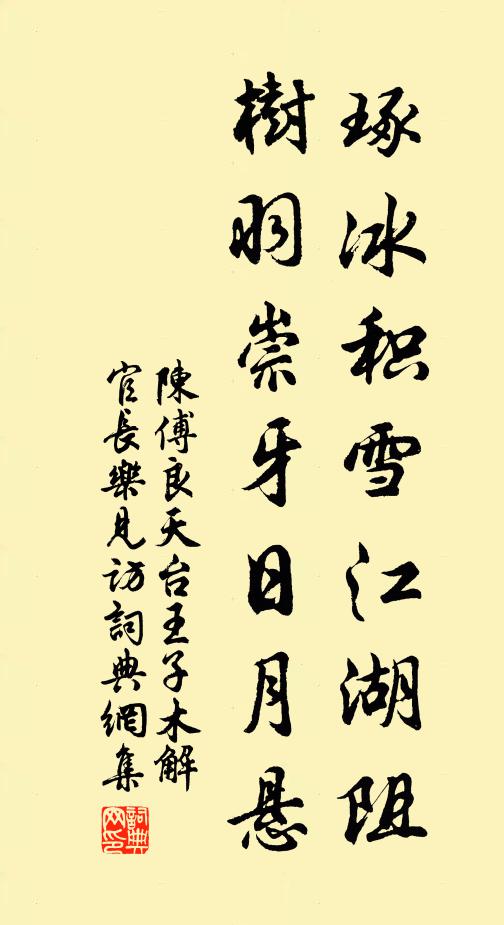 琢冰积雪江湖阻
樹羽崇牙日月懸
陳傅良天台王子木解
官長樂見訪詞典網集
詞典網印